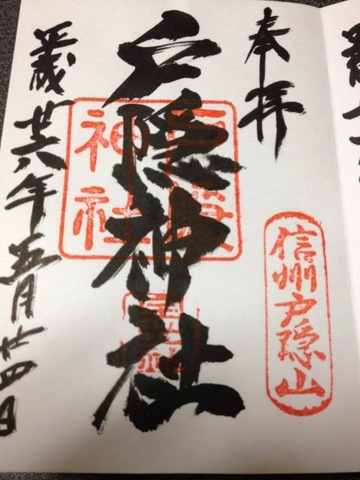 奉拝
信州戸隠山
戸隠神社
戸隠神社
平成廿六年五月廿四日